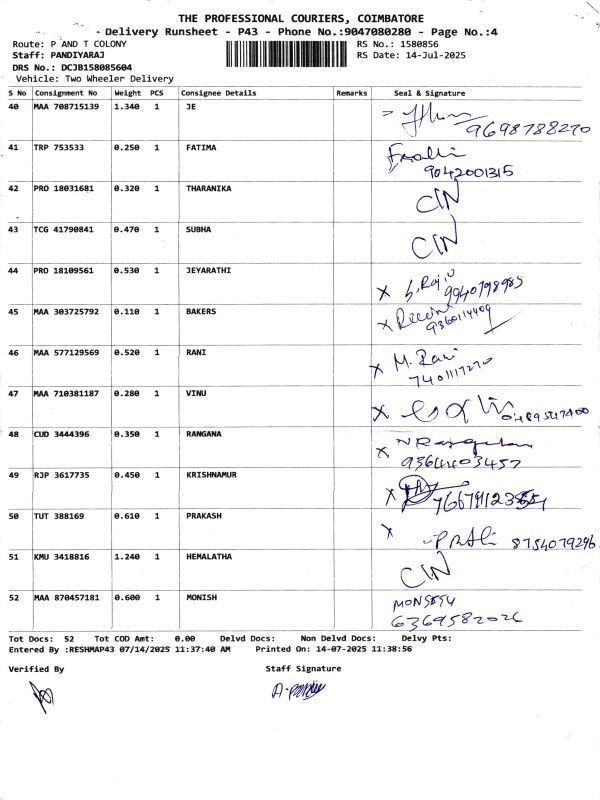 THE PROFESSIONAL COURIERS, COIMBATORE
Delivery Runsheet - P43 - Phone No.:9047080280 - Page No.:4
Route: P AND T COLONY RS No.: 1580856
Staff: PANDIYARAJ RS Date: 14-Jul-2025
DRS No.: DCJB158085604
Vehicle: Two Wheeler Delivery
S No Consignment No Weight PCS Consignee Details Remarks Seal & Signature
40 MAA 708715139 1.340 1 JE
9698788270
41 TRP 753533 0.250 1 FATIMA
9042001315
42 PRO 18031681 0.320 1 THARANIKA
CIN
43 TCG 41790841 0.470 1 SUBHA
CIN
44 PRO 18109561 0.530 1 JEYARATHI
X S. Raju 9940798985
45 MAA 303725792 0.110 1 BAKERS
X 9360114409
46 MAA 577129569 0.520 1 RANI
X M. Rani
7401117270
47 MAA 710381187 0.280 1 VINU
X
48 CUD 3444396 0.350 1 RANGANA
X
9364403457
49 RJP 3617735 0.450 1 KRISHNAMUR
X
50 TUT 388169 0.610 1 PRAKASH
X 8754079296
51 KMU 3418816 1.240 1 HEMALATHA
CIN
52 MAA 870457181 0.600 1 MONISH
6369582026
Tot Docs: 52 Tot COD Amt: 0.00 Delvd Docs: Non Delvd Docs: Delvy Pts:
Entered By :RESHMAP43 07/14/2025 11:37:40 AM Printed On: 14-07-2025 11:38:56
Verified By Staff Signature